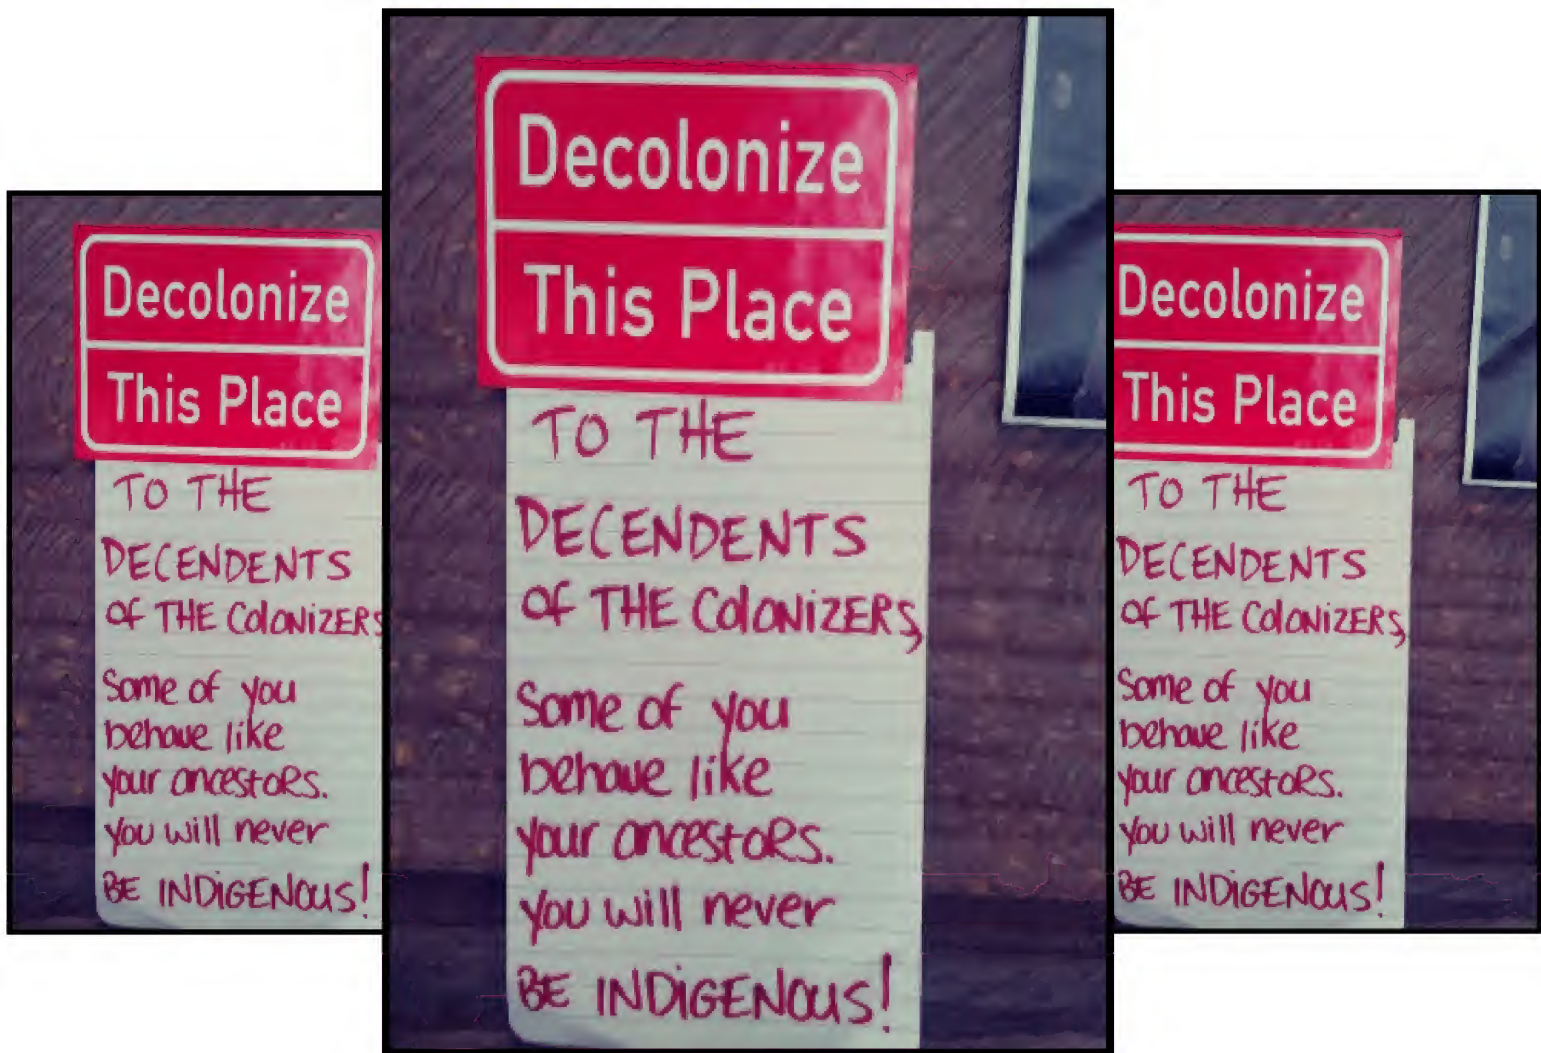 Decolonize
This Place
TO THE
DECENDENTS
OF THE COlONiZERS,
Some of you
behave like
your ancestoRs.
you will never
BE INDiGENOUS!
Decolonize
This Place
TO THE
DECENDENTS
OF THE COlONiZERS
Some of you
behave like
your ancestoRs.
you will never
BE INDiGENOUS!
Decolonize
This Place
TO THE
DECENDENTS
OF THE COlONiZERS,
Some of you
behave like
your ancestoRs.
you will never
BE INDiGENOUS!